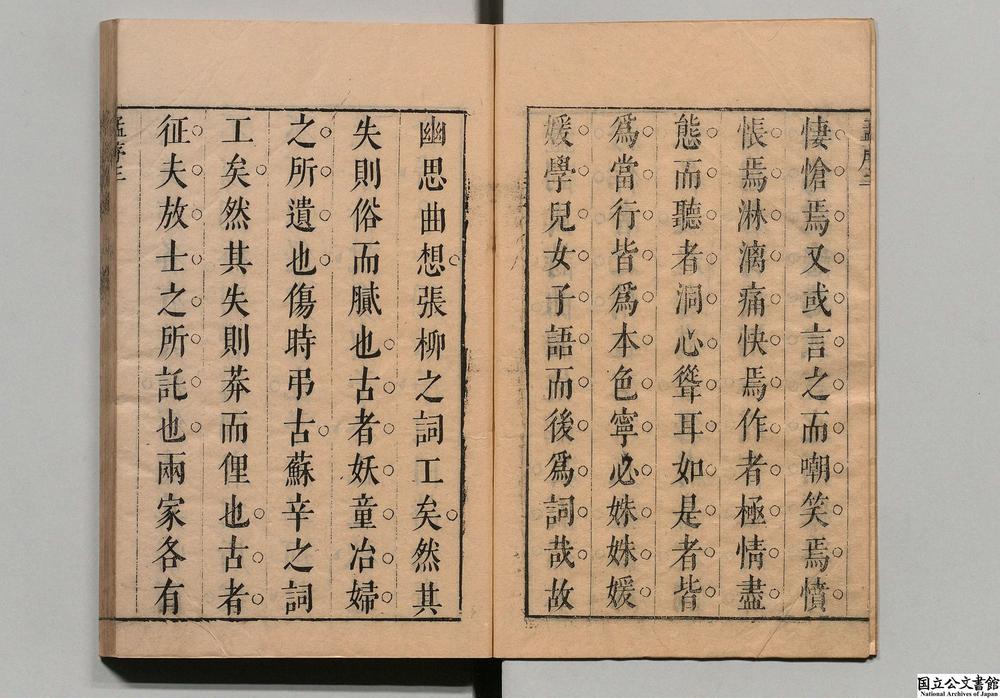 悽愴焉又或言之而嘲笑焉憤
悵焉淋漓痛快焉作者極情盡
態而聽者洞心聳耳如是者皆
爲當行皆爲本色寧必姝姝媛
媛學兒女子語而後爲詞哉故
幽思曲想張柳之詞工矣然其
失則俗而膩也古者妖童冶婦
之所遺也傷時弔古蘇辛之詞
工矣然其失則莽而俚也古者
征夫放士之所託也兩家各有
孟序三
国立公文書館
National Archives of Japan